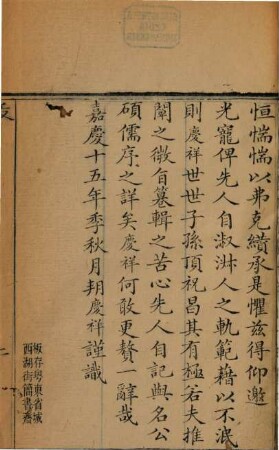 恒惴惴以弗克纘承是懼兹得仰邀
光寵俾先人自淑淋人之軌範藉以不泯
則慶祥世世子孫頂祝昌其有極若夫推
闡之微旨纂輯之苦心先人自記與名公
碩儒序之詳矣慶祥何敢更贅一辭哉
嘉慶十五年季秋月朔慶祥謹識
板存粤東省城
西湖街簡書齋